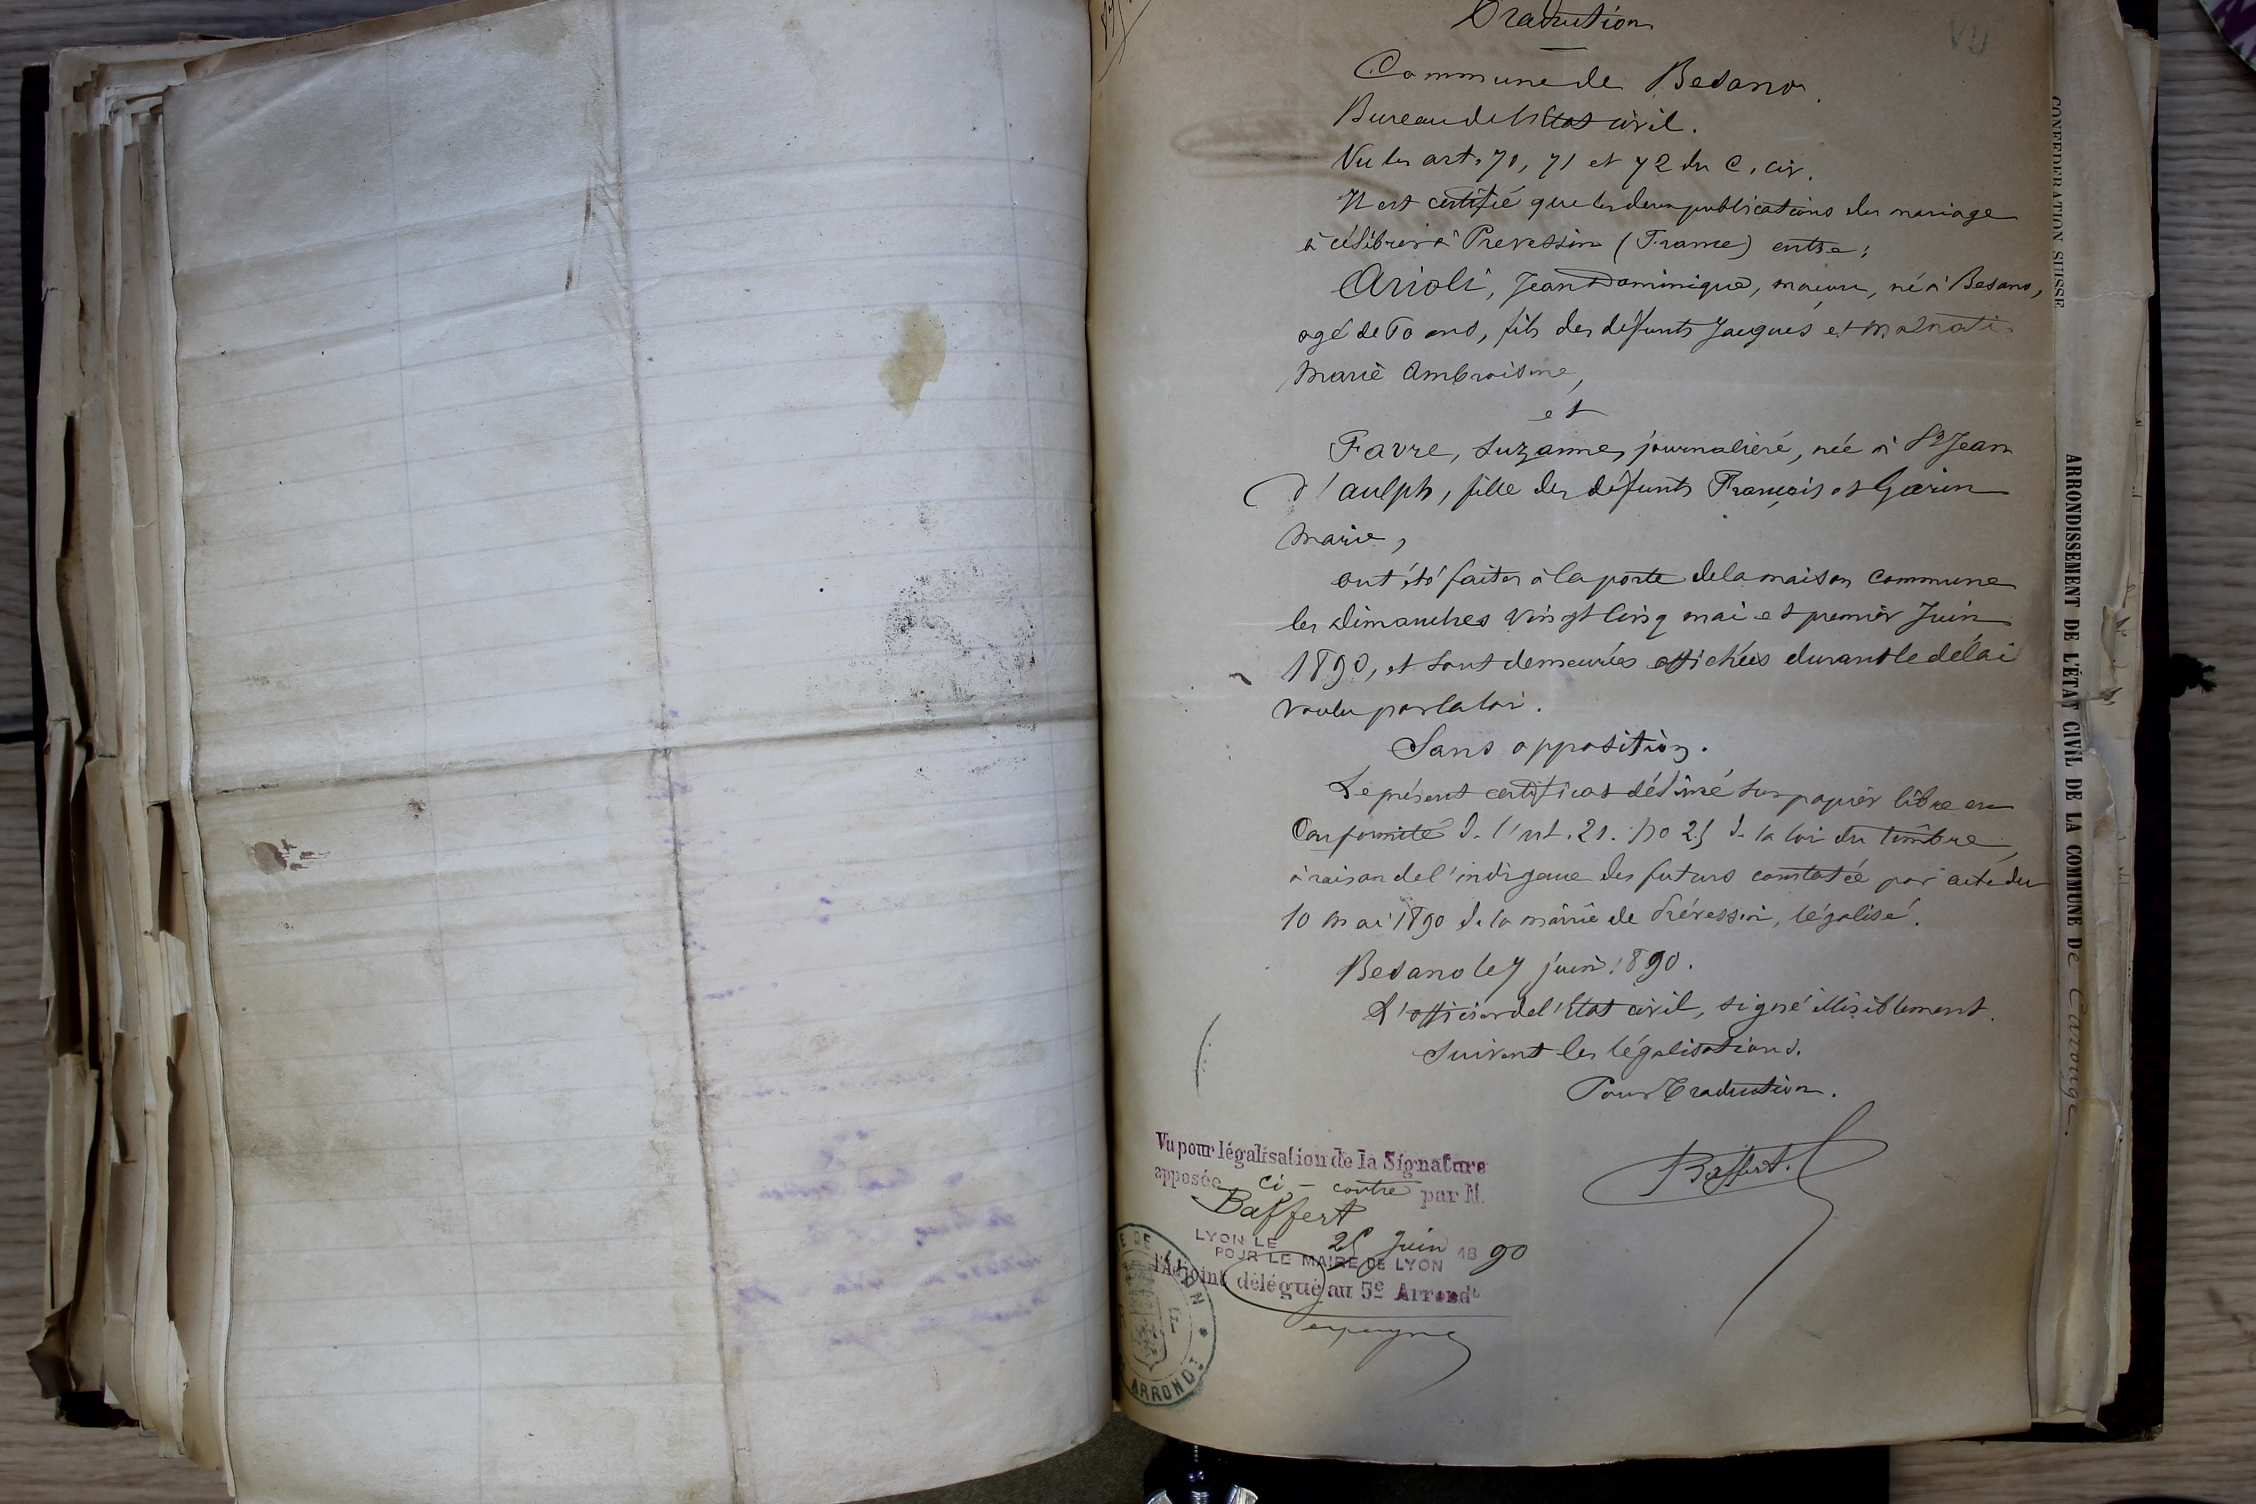 Traduction
VU
Commune de Besano.
Bureau de l'Etat civil.
Vu les art. 70, 71 et 72 du C. civ.
Il est certifié que les deux publications du mariage
à célébrer à Prevessin (France) entre:
Arioli, Jean Dominique, maçon, né à Besano,
agé de ans, fils des défunts Jacques et Malnati
Marie Ambroisine,
et
Favre, Suzanne, journalière, née à St Jean
d'aulph, fille des défunts François et Garin
Marie,
ont été faites à la porte de la maison commune
les dimanches vingt cinq mai et premier Juin
1890, et sont demeurées affichées durant le délai
voulu par la loi.
Sans opposition.
Le présent certificat délivré sur papier libre en
Conformité d. l'art. 21. No 25 d. la loi du timbre,
à raison de l'indigence des futurs constatée par acte du
10 mai 1890 d. la mairie de Prévessin, légalisé.
Besano le 7 juin 1890.
L'officier de l'Etat civil, signé illisiblement.
Suivent les légalisations.
Pour Traduction.
Baffert
Vu pour légalisation de la Signature
apposée ci-contre par M.
Baffert
LYON LE 25 Juin 1890
POUR LE MAIRE DE LYON
l'Adjoint délégué au 5e Arrondt
DE LYON
ARRONDT
CONFEDERATION SUISSE
ARRONDISSEMENT DE L'ÉTAT CIVIL DE LA COMMUNE DE Carouge.